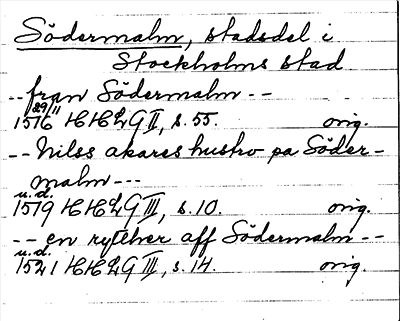 Södermalm, stadsdel i
Stockholms stad
-- fran Södermalm --
29/11
1516 HHLG II, s. 55. orig.
-- Nilss akares hustro pa Söder-
malm ---
u.d.
1519 HHLG III, s. 10. orig.
-- en rytther aff Södermalm --
u.d.
1521 HHLG III, s. 14. orig.